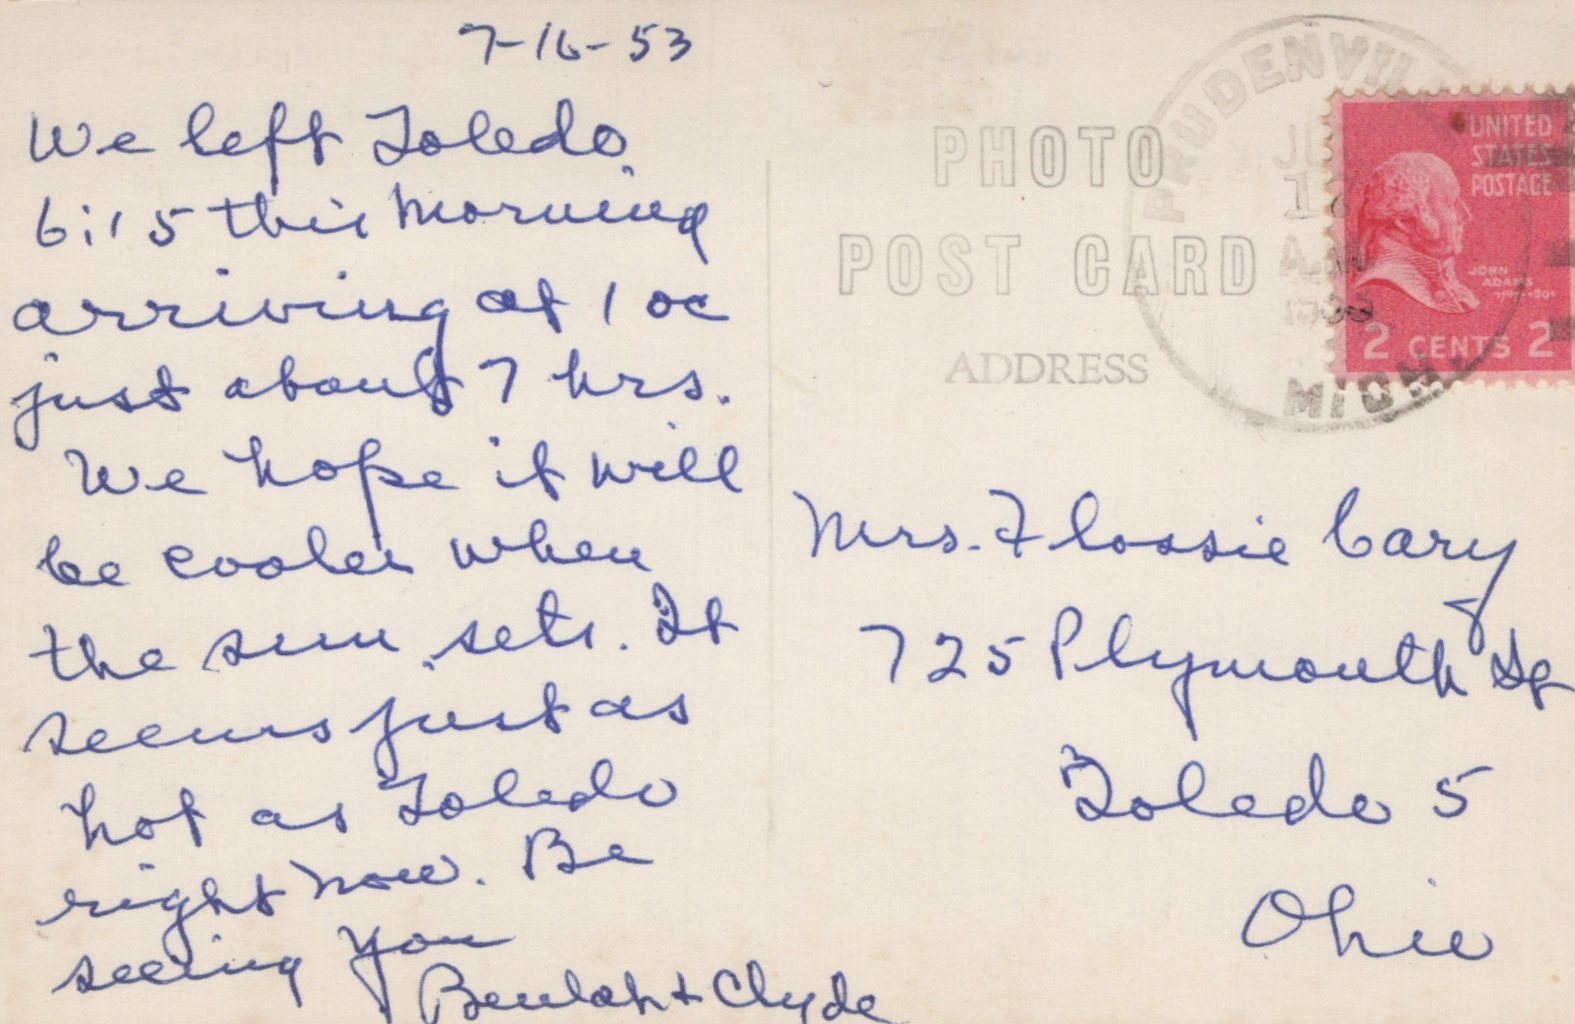 7-16-53
We left Toledo
6:15 this morning
arriving at 1 oc
just about 7 hrs.
We hope it will
be cooler when
the sun sets. It
seems just as
hot as Toledo
right now. Be
seeing you
Beulah + Clyde
PHOTO
POST CARD
ADDRESS
PRUDENVILL
A.M.
MICH.
UNITED
STATES
POSTAGE
JOHN
ADAMS
1797-1801
2 CENTS 2
Mrs. Flossie Cary
725 Plymouth St
Toledo 5
Ohio